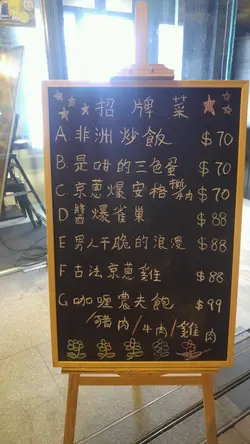 招牌菜
A. 非洲炒飯 $70
B. 是吽的三色蛋 $70
C. 京蔥爆安格斯肉 $70
D 醬爆雀巢 $88
E 男人干脆的浪漫 $88
F 古法京蔥雞 $88
G 咖喱農夫飽 $99
/豬肉/牛肉/雞肉